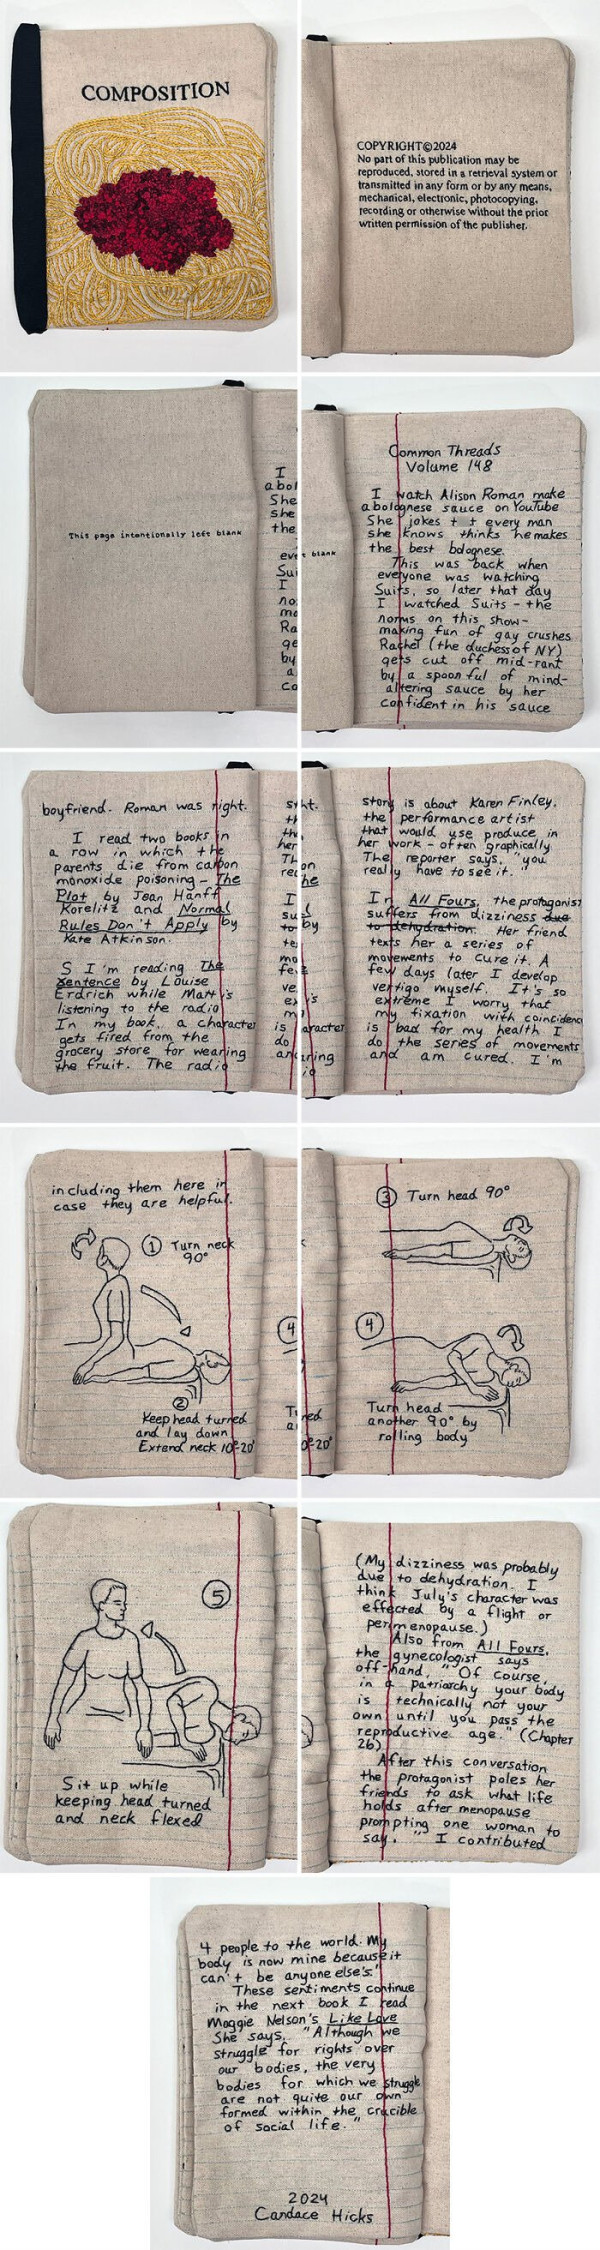 COMPOSITION
COPYRIGHT©2024
No part of this publication may be
reproduced, stored in a retrieval system or
transmitted in any form or by any means,
mechanical, electronic, photocopying,
recording or otherwise without the prior
written permission of the publisher.
This page intentionally left blank
Common Threads
Volume 148
I watch Alison Roman make
a bolognese sauce on YouTube
She jokes t t every man
she knows thinks he makes
the best bolognese.
This was back when
everyone was watching
Suits, so later that day
I watched Suits - the
norms on this show-
making fun of gay crushes
Rachel (the duchess of NY)
gets cut off mid-rant
by a spoonful of mind-
altering sauce by her
confident in his sauce
boyfriend. Roman was right.
I read two books in
a row in which the
parents die from carbon
monoxide poisoning - The
Plot by Jean Hanff
Korelitz and Normal
Rules Don't Apply by
Kate Atkinson.
S I'm reading The
Sentence by Louise
Erdrich while Matt is
listening to the radio
In my book, a character
gets fired from the
grocery store for wearing
the fruit. The radio
story is about Karen Finley,
the performance artist
that would use produce in
her work - often graphically
The reporter says, "you
really have to see it."
In All Fours, the protagonist
suffers from dizziness due
to dehydration. Her friend
texts her a series of
movements to cure it. A
few days later I develop
vertigo myself. It's so
extreme I worry that
my fixation with coincidence
is bad for my health I
do the series of movements
and am cured. I'm
including them here in
case they are helpful.
1 Turn neck
90°
2
Keep head turned
and lay down
Extend neck 10°-20°
3 Turn head 90°
4
Turn head
another 90° by
rolling body
5
Sit up while
keeping head turned
and neck flexed
(My dizziness was probably
due to dehydration. I
think July's character was
effected by a flight or
perimenopause.)
Also from All Fours,
the gynecologist says
off-hand, "Of course,
in a patriarchy your body
is technically not your
own until you pass the
reproductive age." (Chapter
26)
After this conversation
the protagonist poles her
friends to ask what life
holds after menopause
prompting one woman to
say, "I contributed
4 people to the world. My
body is now mine because it
can't be anyone else's."
These sentiments continue
in the next book I read
Maggie Nelson's Like Love
She says, "Although we
struggle for rights over
our bodies, the very
bodies for which we struggle
are not quite our own
formed within the crucible
of social life."
2024
Candace Hicks